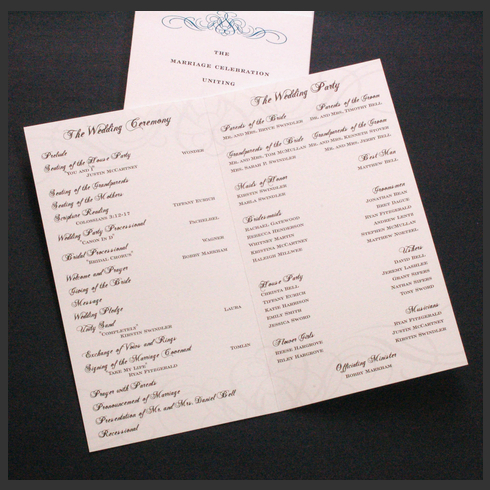 THE
MARRIAGE CELEBRATION
UNITING
The Wedding Ceremony
Prelude
Seating of the House Party WONDER
"YOU AND I" JUSTIN MCCARTNEY
Seating of the Grandparents
Seating of the Mothers
Scripture Reading TIFFANY EURICH
COLOSSIANS 3:12-17
Wedding Party Processional PACHELBEL
"CANON IN D"
Bridal Processional WAGNER
"BRIDAL CHORUS" BOBBY MARKHAM
Welcome and Prayer
Giving of the Bride
Message
Wedding Pledge
Unity Sand LAURA
"COMPLETELY" KIRSTIN SWINDLER
Exchange of Vows and Rings
Signing of the Marriage Covenant TOMLIN
"TAKE MY LIFE" JUSTIN MCCARTNEY
Prayer with Parents
Pronouncement of Marriage
Presentation of Mr. and Mrs. Daniel Bell
Recessional
The Wedding Party
Parents of the Bride
MR. AND MRS. BRYCE SWINDLER
Grandparents of the Bride
MR. AND MRS. TOM MCMULLAN
MRS. SARAH P. SWINDLER
Maids of Honor
KIRSTIN SWINDLER
MARLA SWINDLER
Bridesmaids
RACHAEL GATEWOOD
REBECCA HENDERSON
WHITNEY MARTIN
KRISTINA MCCARTNEY
HALEIGH MILLWEE
House Party
CHRISTA BELL
TIFFANY EURICH
KATIE HARRISON
EMILY SMITH
JESSICA SWORD
Flower Girls
REESE HARGROVE
RILEY HARGROVE
Parents of the Groom
MR. AND MRS. TIMOTHY BELL
Grandparents of the Groom
MR. AND MRS. KENNETH STOVER
MR. AND MRS. JERRY BELL
Best Man
MATTHEW BELL
Groomsmen
JONATHAN BEAN
BRET DAGUE
RYAN FITZGERALD
ANDREW LENTZ
STEPHEN MCMULLAN
MATTHEW NORTHEL
Ushers
DAVID BELL
JEREMY LASHLEE
GRANT SIPERS
NATHAN SIPERS
TONY SWORD
Musicians
RYAN FITZGERALD
JUSTIN MCCARTNEY
KIRSTIN SWINDLER
Officiating Minister
BOBBY MARKHAM